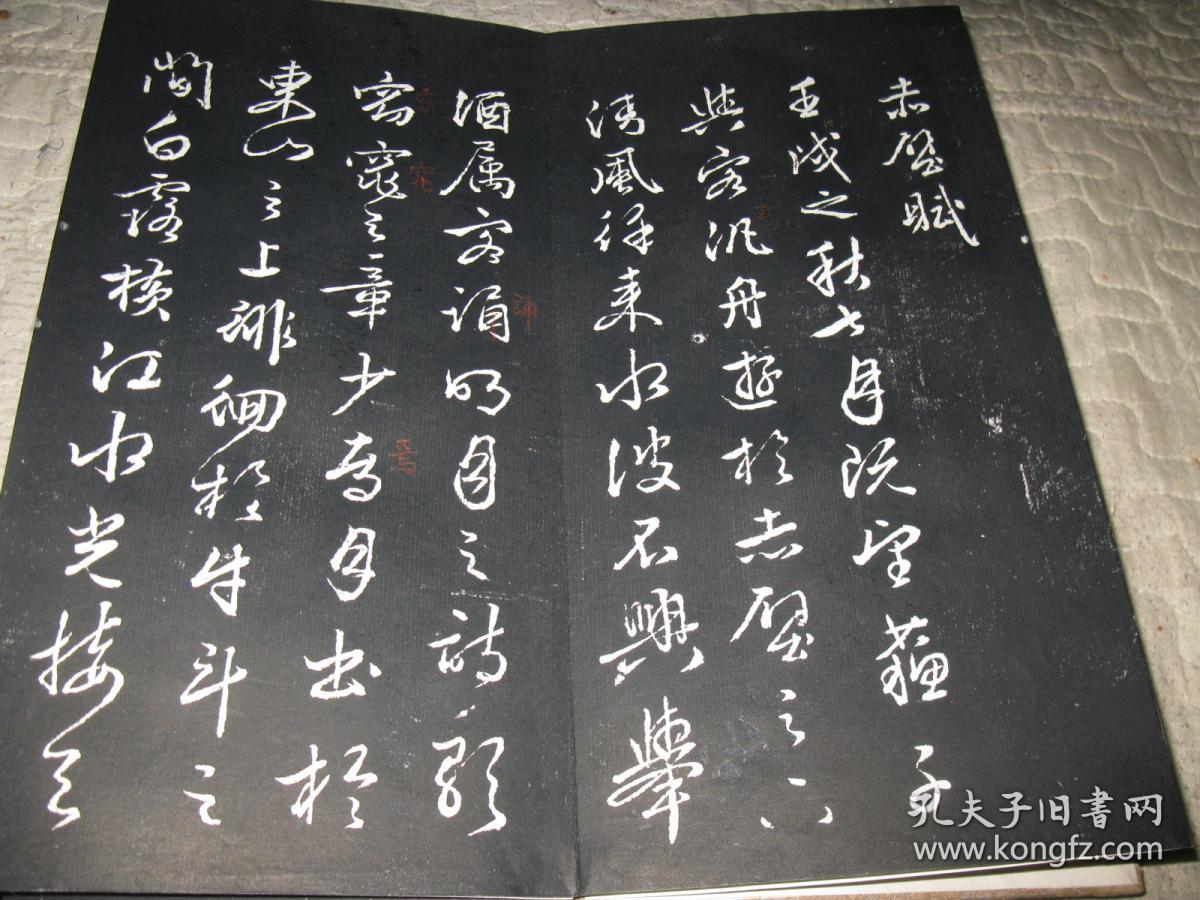 赤壁賦
壬戌之秋七月既望蘇子
與客汎舟遊於赤壁之下
清風徐來水波不興舉
酒属客誦明月之詩歌
誦
窈窕之章少焉月出於
窕
焉
東山之上徘徊於牛斗之
間白露橫江水光接天
孔夫子旧書网
www.kongfz.com